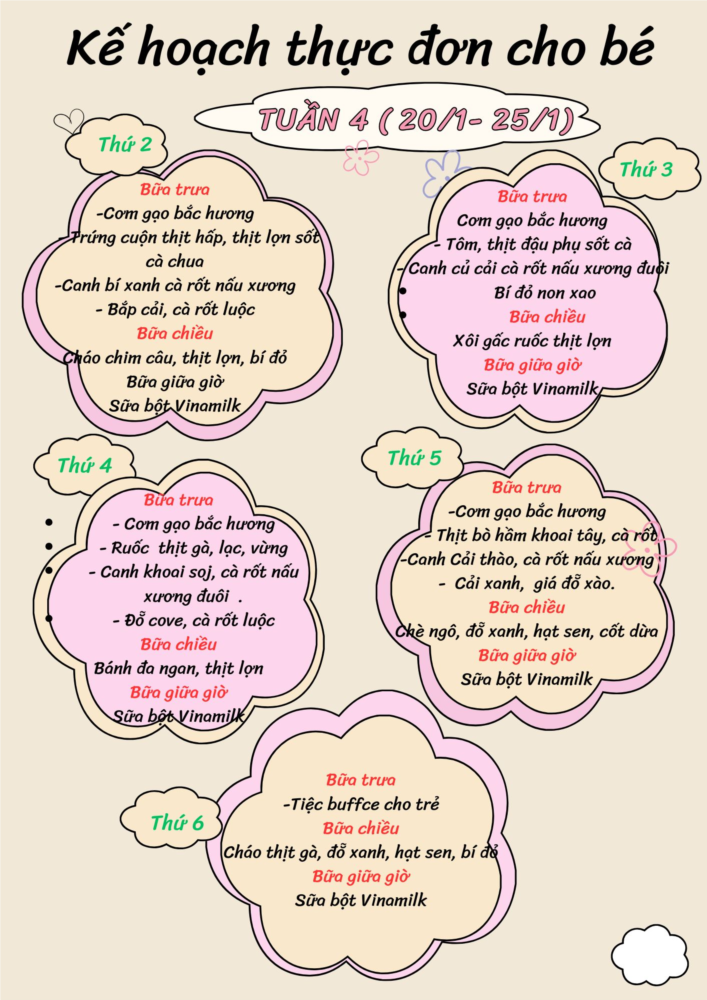 Kế hoạch thực đơn cho bé
TUẦN 4 ( 20/1- 25/1)
Thứ 2
Bữa trưa
-Cơm gạo bắc hương
- Trứng cuộn thịt hấp, thịt lợn sốt
cà chua
-Canh bí xanh cà rốt nấu xương
- Bắp cải, cà rốt luộc
Bữa chiều
Cháo chim câu, thịt lợn, bí đỏ
Bữa giữa giờ
Sữa bột Vinamilk
Thứ 3
Bữa trưa
Cơm gạo bắc hương
- Tôm, thịt đậu phụ sốt cà
- Canh củ cải cà rốt nấu xương đuôi
• Bí đỏ non xao
• Bữa chiều
Xôi gấc ruốc thịt lợn
Bữa giữa giờ
Sữa bột Vinamilk
Thứ 4
Bữa trưa
• - Cơm gạo bắc hương
• - Ruốc thịt gà, lạc, vừng
• - Canh khoai soj, cà rốt nấu
xương đuôi .
• - Đỗ cove, cà rốt luộc
Bữa chiều
Bánh đa ngan, thịt lợn
Bữa giữa giờ
Sữa bột Vinamilk
Thứ 5
Bữa trưa
-Cơm gạo bắc hương
- Thịt bò hầm khoai tây, cà rốt
-Canh Cải thào, cà rốt nấu xương
- Cải xanh, giá đỗ xào.
Bữa chiều
Chè ngô, đỗ xanh, hạt sen, cốt dừa
Bữa giữa giờ
Sữa bột Vinamilk
Thứ 6
Bữa trưa
-Tiệc buffce cho trẻ
Bữa chiều
Cháo thịt gà, đỗ xanh, hạt sen, bí đỏ
Bữa giữa giờ
Sữa bột Vinamilk